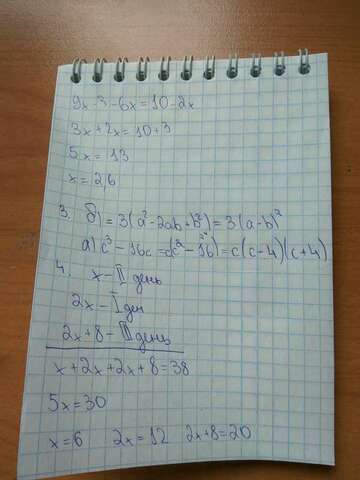 9x-3-6x=10-2x
3x+2x=10+3
5x=13
x=2,6
3. б)=3(a²-2ab+b²)=3(a-b)²
a) c³-16c=c(c²-16)=c(c-4)(c+4)
4. x-II день
2x-I день
2x+8-III день
x+2x+2x+8=38
5x=30
x=6 2x=12 2x+8=20